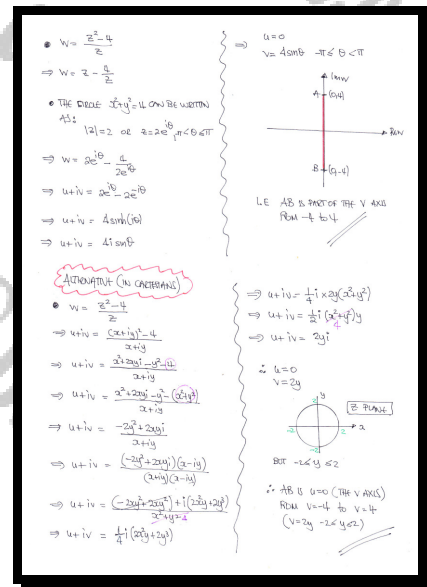 • W = (z²-4)/z
⇒ W = z - 4/z
• THE CIRCLE x²+y²=4 CAN BE WRITTEN
AS:
|z|=2 OR z=2e^(iθ), -π≤θ≤π
⇒ W = 2e^(iθ) - 4/(2e^(iθ))
⇒ u+iv = 2e^(iθ) - 2e^(-iθ)
⇒ u+iv = 4sinh(iθ)
⇒ u+iv = 4i sinθ
⇒ u=0
v= 4sinθ -π≤θ<π
Imw
A (0,4)
Rew
B (0,-4)
I.E AB IS PART OF THE V AXIS
FROM -4 to 4
ALTERNATIVE (IN CARTESIANS)
• W = (z²-4)/z
⇒ u+iv = ((x+iy)²-4)/(x+iy)
⇒ u+iv = (x²+2xyi-y²-4)/(x+iy)
⇒ u+iv = (x²+2xyi-y²-(x²+y²))/(x+iy)
⇒ u+iv = (-2y²+2xyi)/(x+iy)
⇒ u+iv = ((-2y²+2xyi)(x-iy))/((x+iy)(x-iy))
⇒ u+iv = ((-2xy²+2xy²)+i(2x²y+2y³))/(x²+y²) 4
⇒ u+iv = 1/4 i(2x²y+2y³)
⇒ u+iv = 1/4 i × 2y(x²+y²)
⇒ u+iv = 1/2 i (x²+y²)y
4
⇒ u+iv = 2yi
∴ u=0
v=2y
y
Z PLANE
2
-2
2
x
-2
BUT -2≤y≤2
∴ AB IS u=0 (THE V AXIS)
FROM V=-4 to V=4
(V=2y -2≤y≤2)